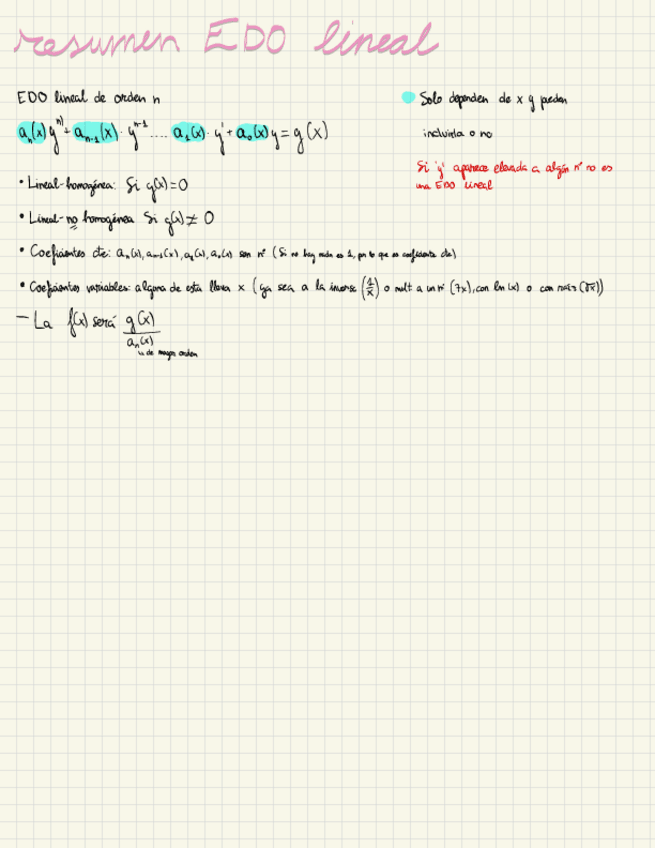 resumen EDO lineal
EDO lineal de orden n
aₙ(x) yⁿ⁾ + aₙ₋₁(x) · yⁿ⁻¹ .... a₁(x) · y' + a₀(x) y = g(x)
Solo dependen de x y pueden
incluirla o no
Si 'y' aparece elevada a algún nº no es
una EDO lineal
• Lineal-homogénea: Si g(x)=0
• Lineal-no homogénea Si g(x) ≠ 0
• Coeficientes cte: aₙ(x), aₙ₋₁(x), a₁(x), a₀(x) son nº (Si no hay nada es 1, por lo que es coeficiente cte)
• Coeficientes variables: alguna de esta lleva x (ya sea a la inversa (1/x) o mult a un nº (7x), con ln(x) o con raíz (√x))
– La f(x) será g(x)/aₙ(x)
↳ de mayor orden